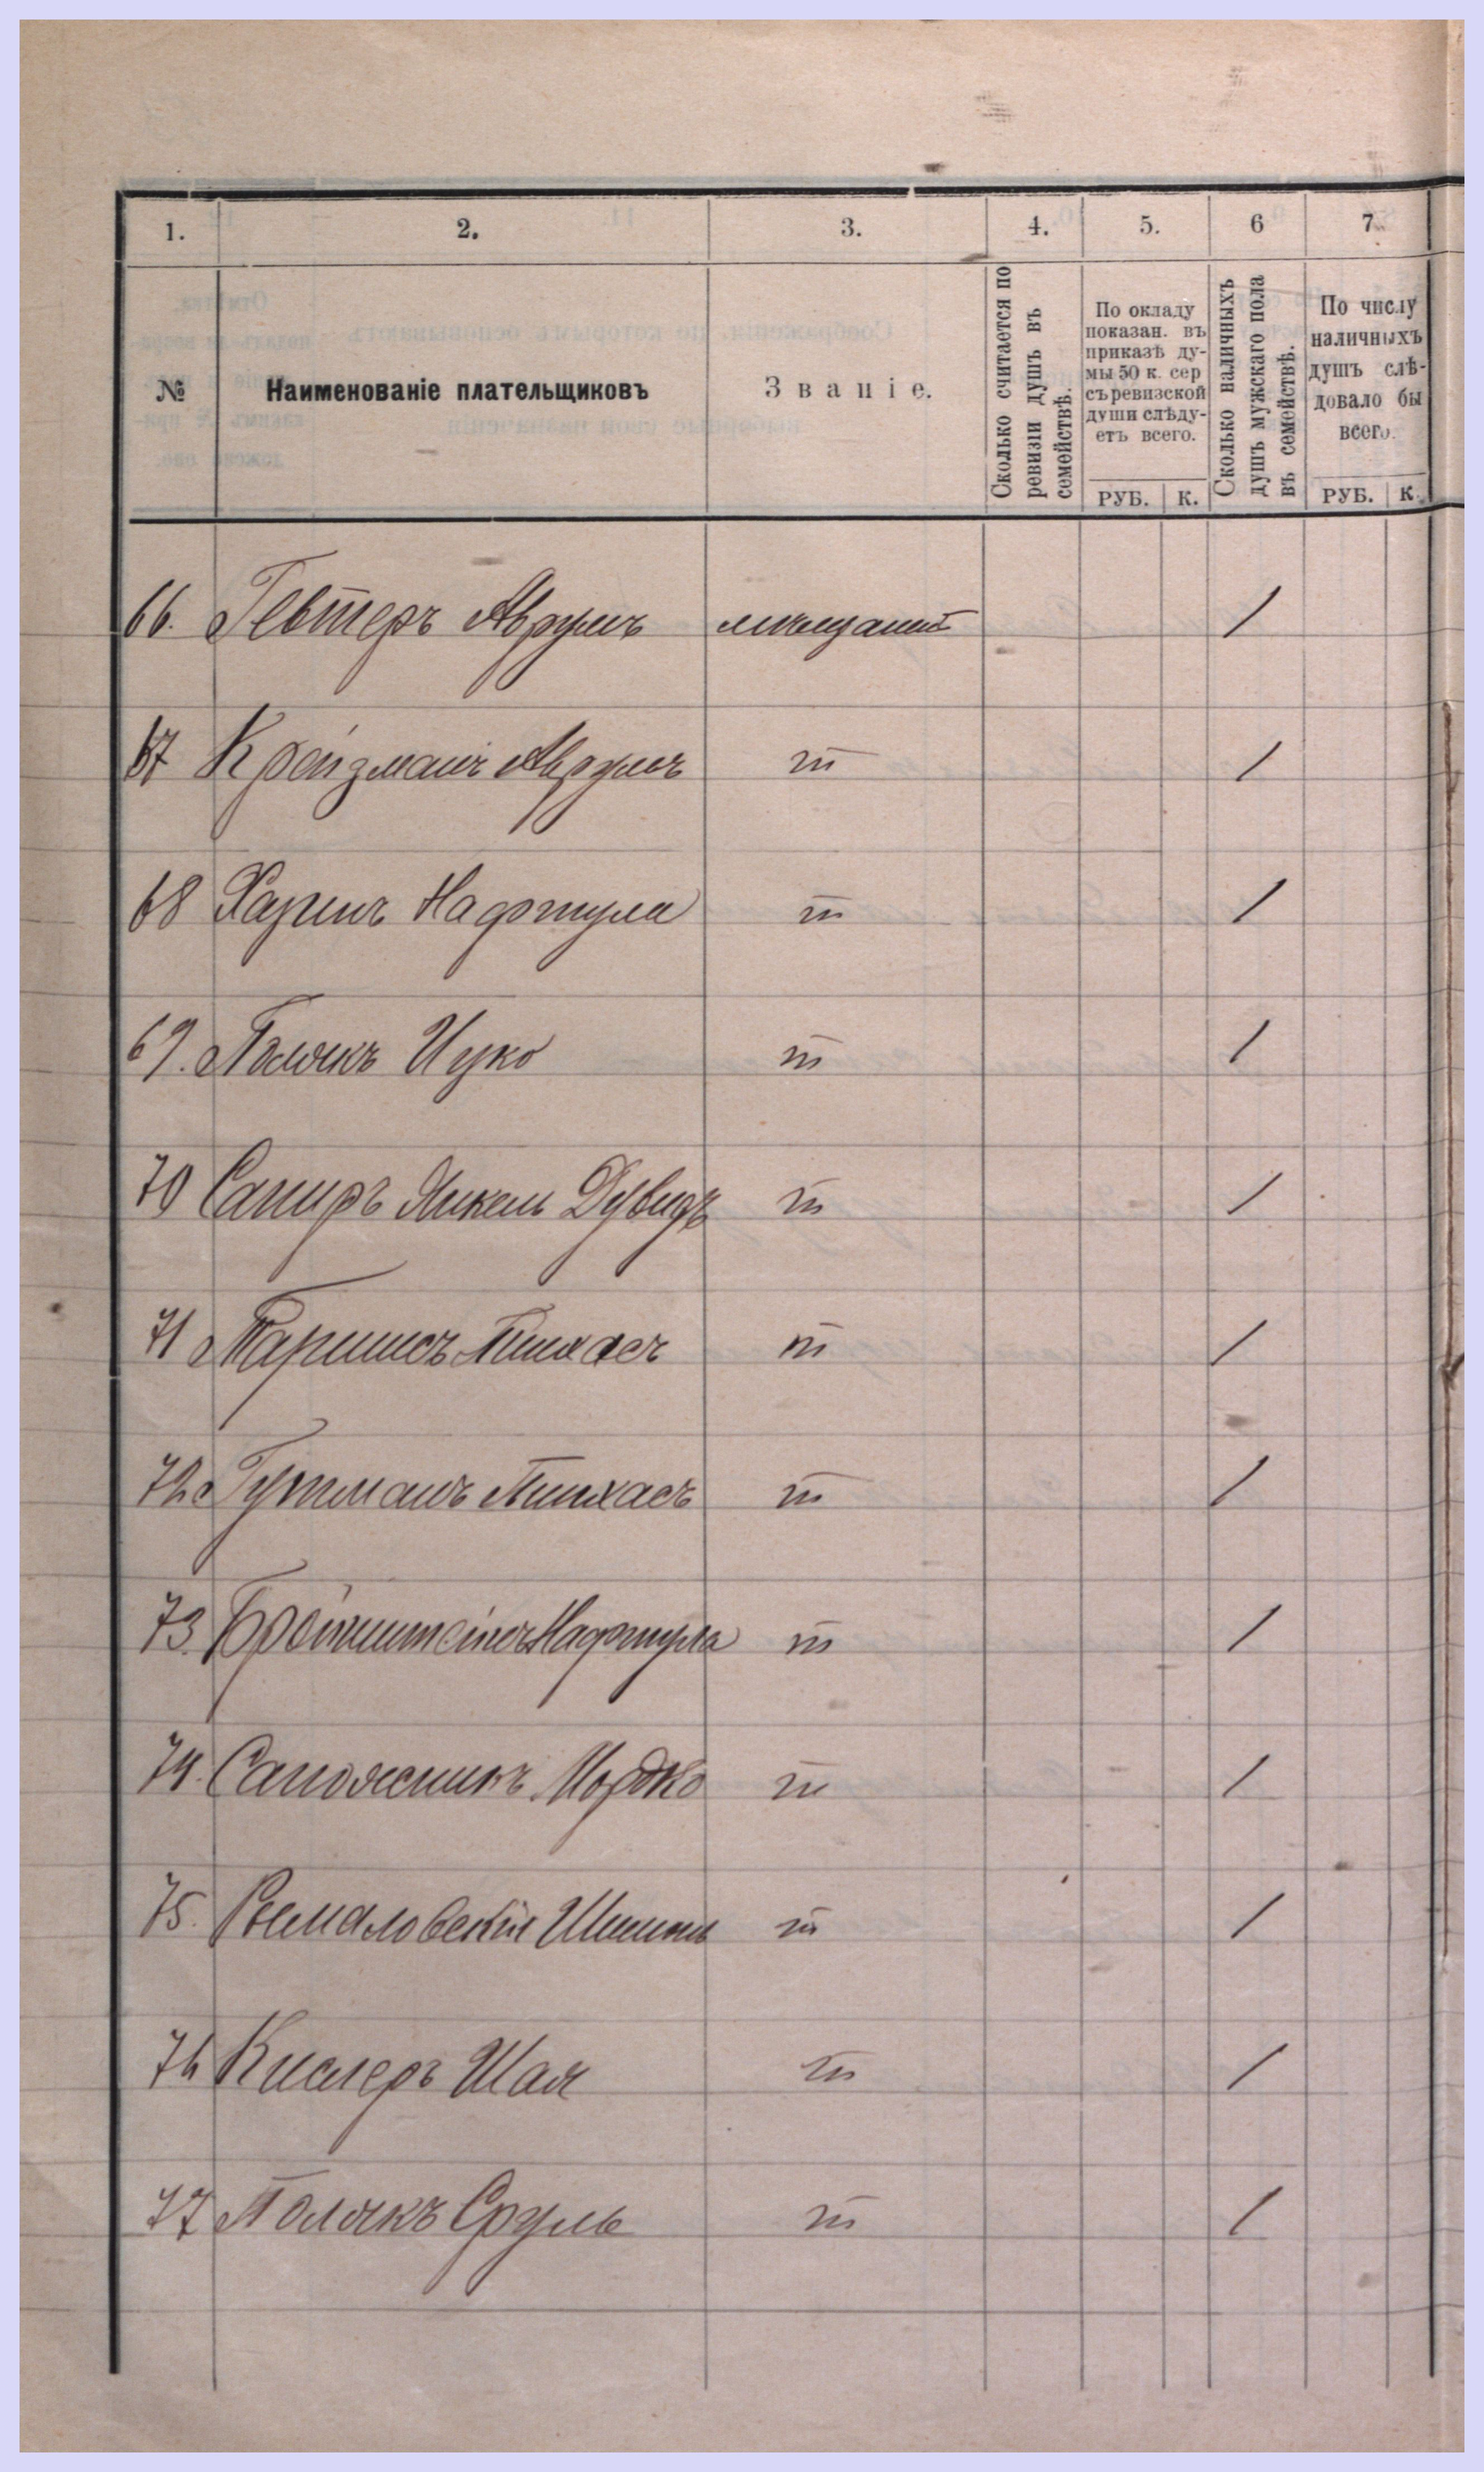 1. 2. 3. 4. 5. 6 7.
№ Наименованіе плательщиковъ Званіе. Сколько считается по ревизіи душъ въ семействѣ. По окладу показан. въ приказѣ думы 50 к. сер съ ревизской души слѣдуетъ всего. Сколько наличныхъ душъ мужскаго пола въ семействѣ. По числу наличныхъ душъ слѣдовало бы всего.
РУБ. К. РУБ. К.
66. Гевтеръ Аврумъ мѣщанинъ 1
67 Кройзманъ Аврумъ т 1
68 Харинъ Нафтула т 1
69. Полякъ Ицко т 1
70 Сапиръ Янкель Дувидъ т 1
71 Пинхасъ т 1
72 Гутманъ Пинхасъ т 1
73. Бронштейнъ Нафтула т 1
74. Сапожникъ Мордко т 1
75. т 1
76 Кислеръ Шая т 1
77 Полякъ Сруль т 1